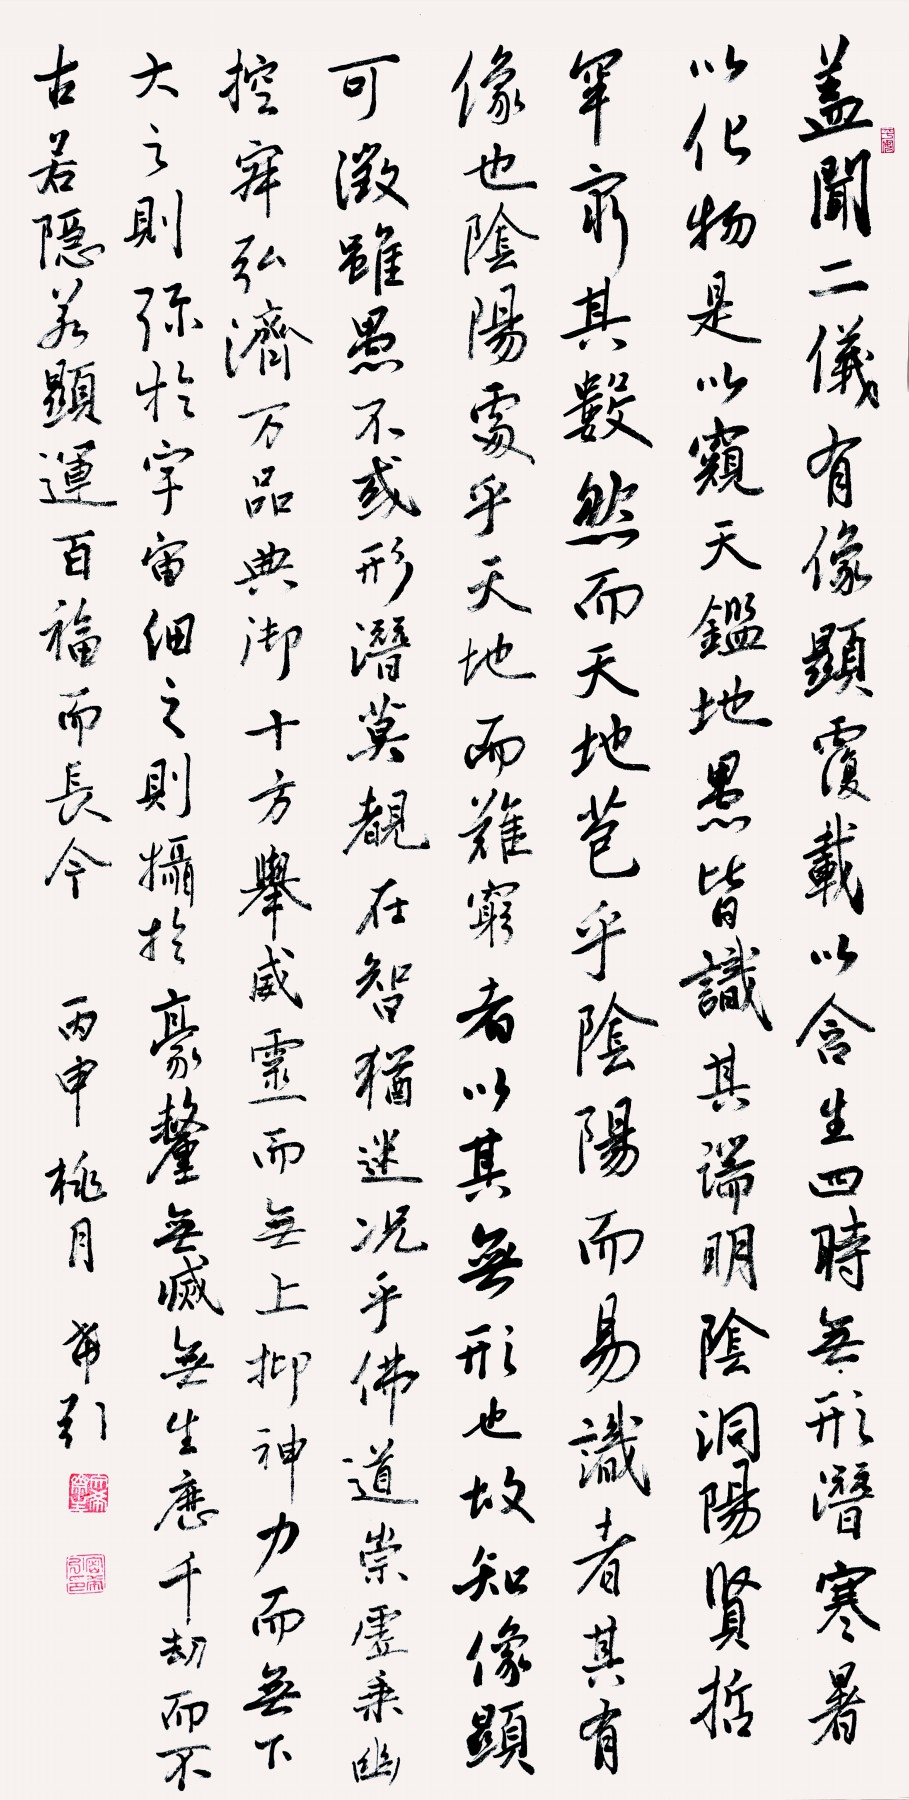 蓋聞二儀有像顯覆載以含生四時無形潛寒暑
以化物是以窺天鑑地愚皆識其端明陰洞陽賢哲
罕窮其數然而天地苞乎陰陽而易識者其有
像也陰陽處乎天地而難窮者以其無形也故知像顯
可徵雖愚不惑形潛莫覩在智猶迷況乎佛道崇虛乘幽
控寂弘濟万品典御十方舉威靈而無上抑神力而無下
大之則彌於宇宙細之則攝於豪釐無滅無生歷千劫而不
古若隱若顯運百福而長今 丙申桃月